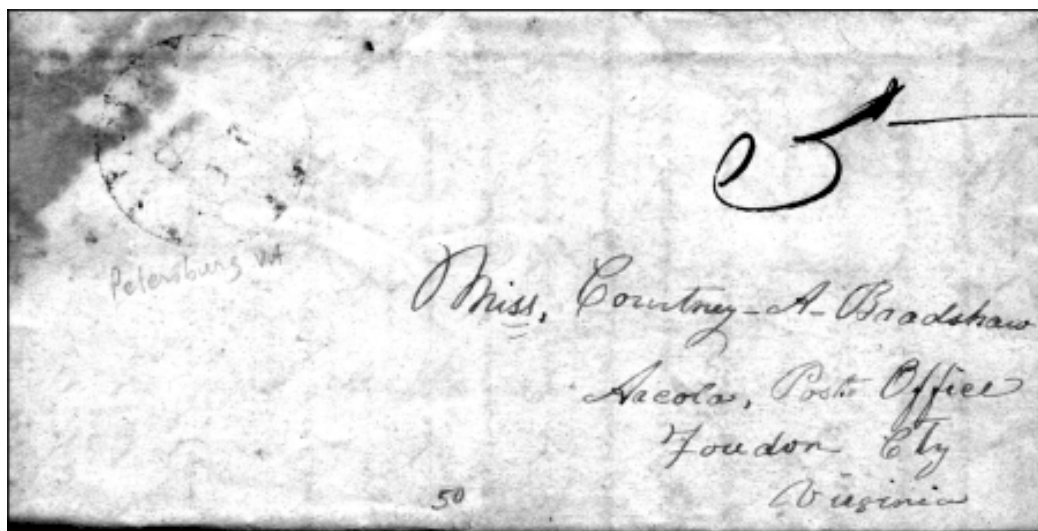 5
Petersburg VA
Miss, Courtney-A-Bradshaw
Arcola, Post Office
Loudon Cty
Virginia
50